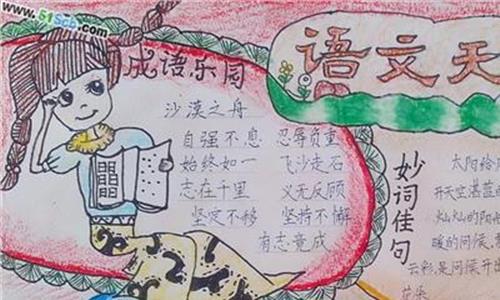 www.51Scb.com
成语乐园
语文天
沙漠之舟
自强不息 忍辱负重
始终如一 飞沙走石
志在千里 义无反顾
坚定不移 坚持不懈
有志竟成
妙词佳句
太阳给
天空湛蓝
灿灿的阳
暖的问候
云彩是问候